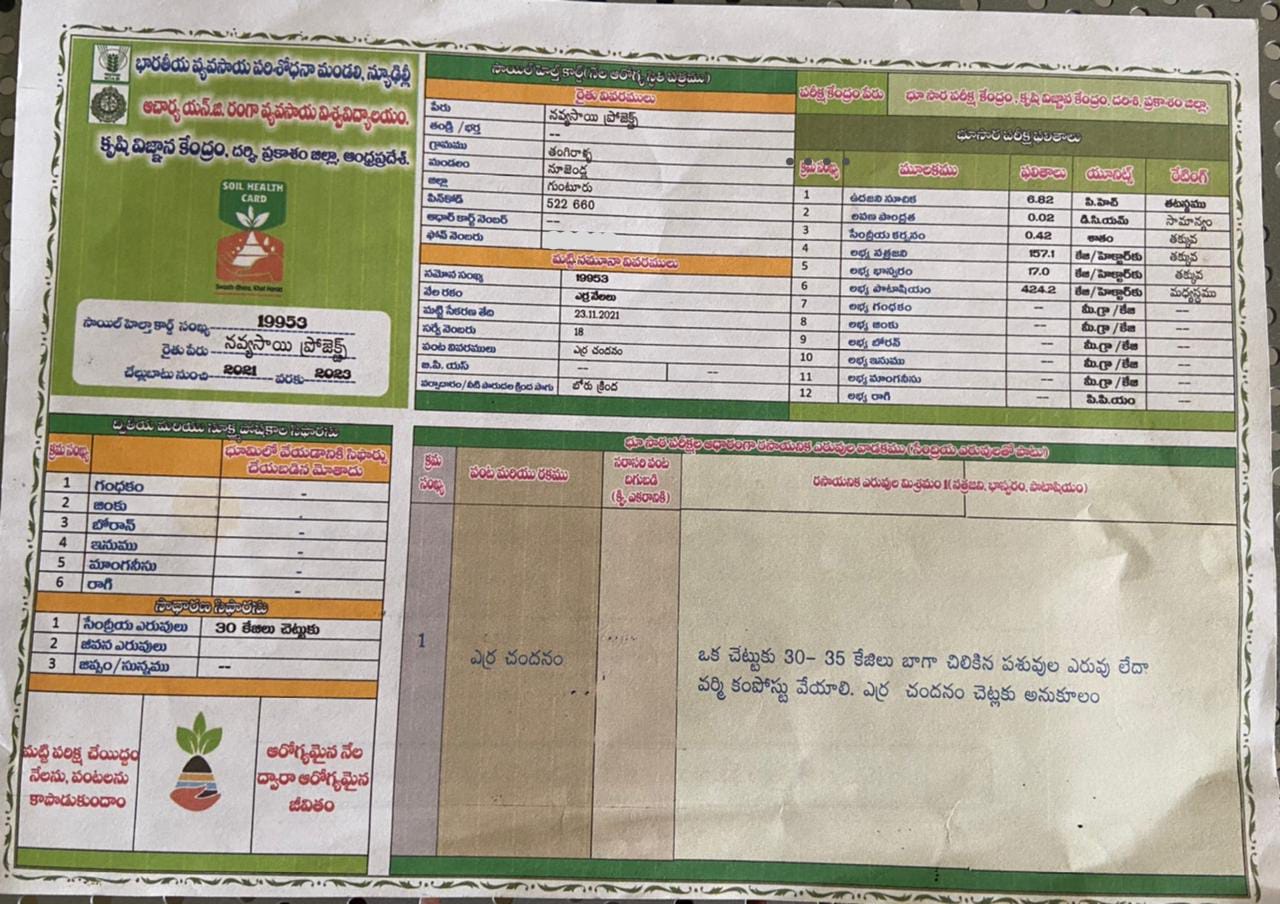 భారతీయ వ్యవసాయ పరిశోధనా మండలి, న్యూఢిల్లీ
ఆచార్య యన్.జి. రంగా వ్యవసాయ విశ్వవిద్యాలయం.
కృషి విజ్ఞాన కేంద్రం, దర్శి, ప్రకాశం జిల్లా, ఆంధ్రప్రదేశ్.
SOIL HEALTH
CARD
Swasth Dhara, Khet Haraa
సాయిల్ హెల్త్ కార్డ్ సంఖ్య 19953
రైతు పేరు నవ్యసాయి ప్రోజెక్ట్స్
చెల్లుబాటు నుంచి 2021 వరకు 2023
సాయిల్ హెల్త్ కార్డ్ (నేల ఆరోగ్య స్థితి పత్రము)
రైతు వివరములు
పేరు నవ్యసాయి ప్రోజెక్ట్స్
తండ్రి /భర్త --
గ్రామము తంగిరాళ్ళ
మండలం నూజెండ్ల
జిల్లా గుంటూరు
పిన్‌కోడ్ 522 660
ఆధార్ కార్డ్ నెంబర్ --
ఫోన్ నెంబరు
మట్టి నమూనా వివరములు
నమోన సంఖ్య 19953
నేల రకం ఎర్ర నేలలు
మట్టి సేకరణ తేది 23.11.2021
సర్వే నెంబరు 18
పంట వివరములు ఎర్ర చందనం
జి.పి. యస్ -- --
వర్షాదారం/నీటి పారుదల క్రింద సాగు బోరు క్రింద
పరీక్ష కేంద్రం పేరు భూసార పరీక్ష కేంద్రం, కృషి విజ్ఞాన కేంద్రం, దరిశి, ప్రకాశం జిల్లా.
భూసార పరీక్ష ఫలితాలు
క్రమ సంఖ్య మూలకము ఫలితాలు యూనిట్స్ రేటింగ్
1 ఉదజని సూచిక 6.82 పి.హెచ్ తటస్థము
2 లవణ సాంద్రత 0.02 డి.సి.యమ్ సామాన్యం
3 సేంద్రీయ కర్బనం 0.42 శాతం తక్కువ
4 లభ్య నత్రజని 157.1 కేజి/హెక్టార్‌కు తక్కువ
5 లభ్య భాస్వరం 17.0 కేజి/హెక్టార్‌కు తక్కువ
6 లభ్య పొటాషియం 424.2 కేజి/హెక్టార్‌కు మధ్యస్థము
7 లభ్య గంధకం -- మి.గ్రా /కేజి ---
8 లభ్య జింకు -- మి.గ్రా /కేజి ---
9 లభ్య బోరన్ -- మి.గ్రా /కేజి ---
10 లభ్య ఇనుము -- మి.గ్రా /కేజి ---
11 లభ్య మాంగనీసు -- మి.గ్రా /కేజి ---
12 లభ్య రాగి -- పి.పి.యం ---
ద్వితీయ మరియు సూక్ష్మపోషకాల సిఫారసు
క్రమ సంఖ్య భూమిలో వేయడానికి సిఫార్సు
చేయబడిన మోతాదు
1 గంధకం -
2 జింకు -
3 బోరాన్ -
4 ఇనుము -
5 మాంగనీసు -
6 రాగి -
సాధారణ సిఫారసు
1 సేంద్రీయ ఎరువులు 30 కేజిలు చెట్టుకు
2 జీవన ఎరువులు
3 జిప్సం/సున్నము --
మట్టి పరీక్ష చేయిద్దం
నేలను, పంటలను
కాపాడుకుందాం
ఆరోగ్యమైన నేల
ద్వారా ఆరోగ్యమైన
జీవితం
భూ సార పరీక్షల ఆధారంగా రసాయనిక ఎరువుల వాడకము (సేంద్రియ ఎరువులతో పాటు)
క్రమ
సంఖ్య
పంట మరియు రకము
సరాసరి పంట
దిగుబడి
(క్వి. ఎకరానికి)
రసాయనిక ఎరువుల మిశ్రమం 1(నత్రజని, భాస్వరం, పొటాషియం)
1 ఎర్ర చందనం
ఒక చెట్టుకు 30– 35 కేజిలు బాగా చిలికిన పశువుల ఎరువు లేదా
వర్మి కంపోస్టు వేయాలి. ఎర్ర చందనం చెట్లకు అనుకూలం